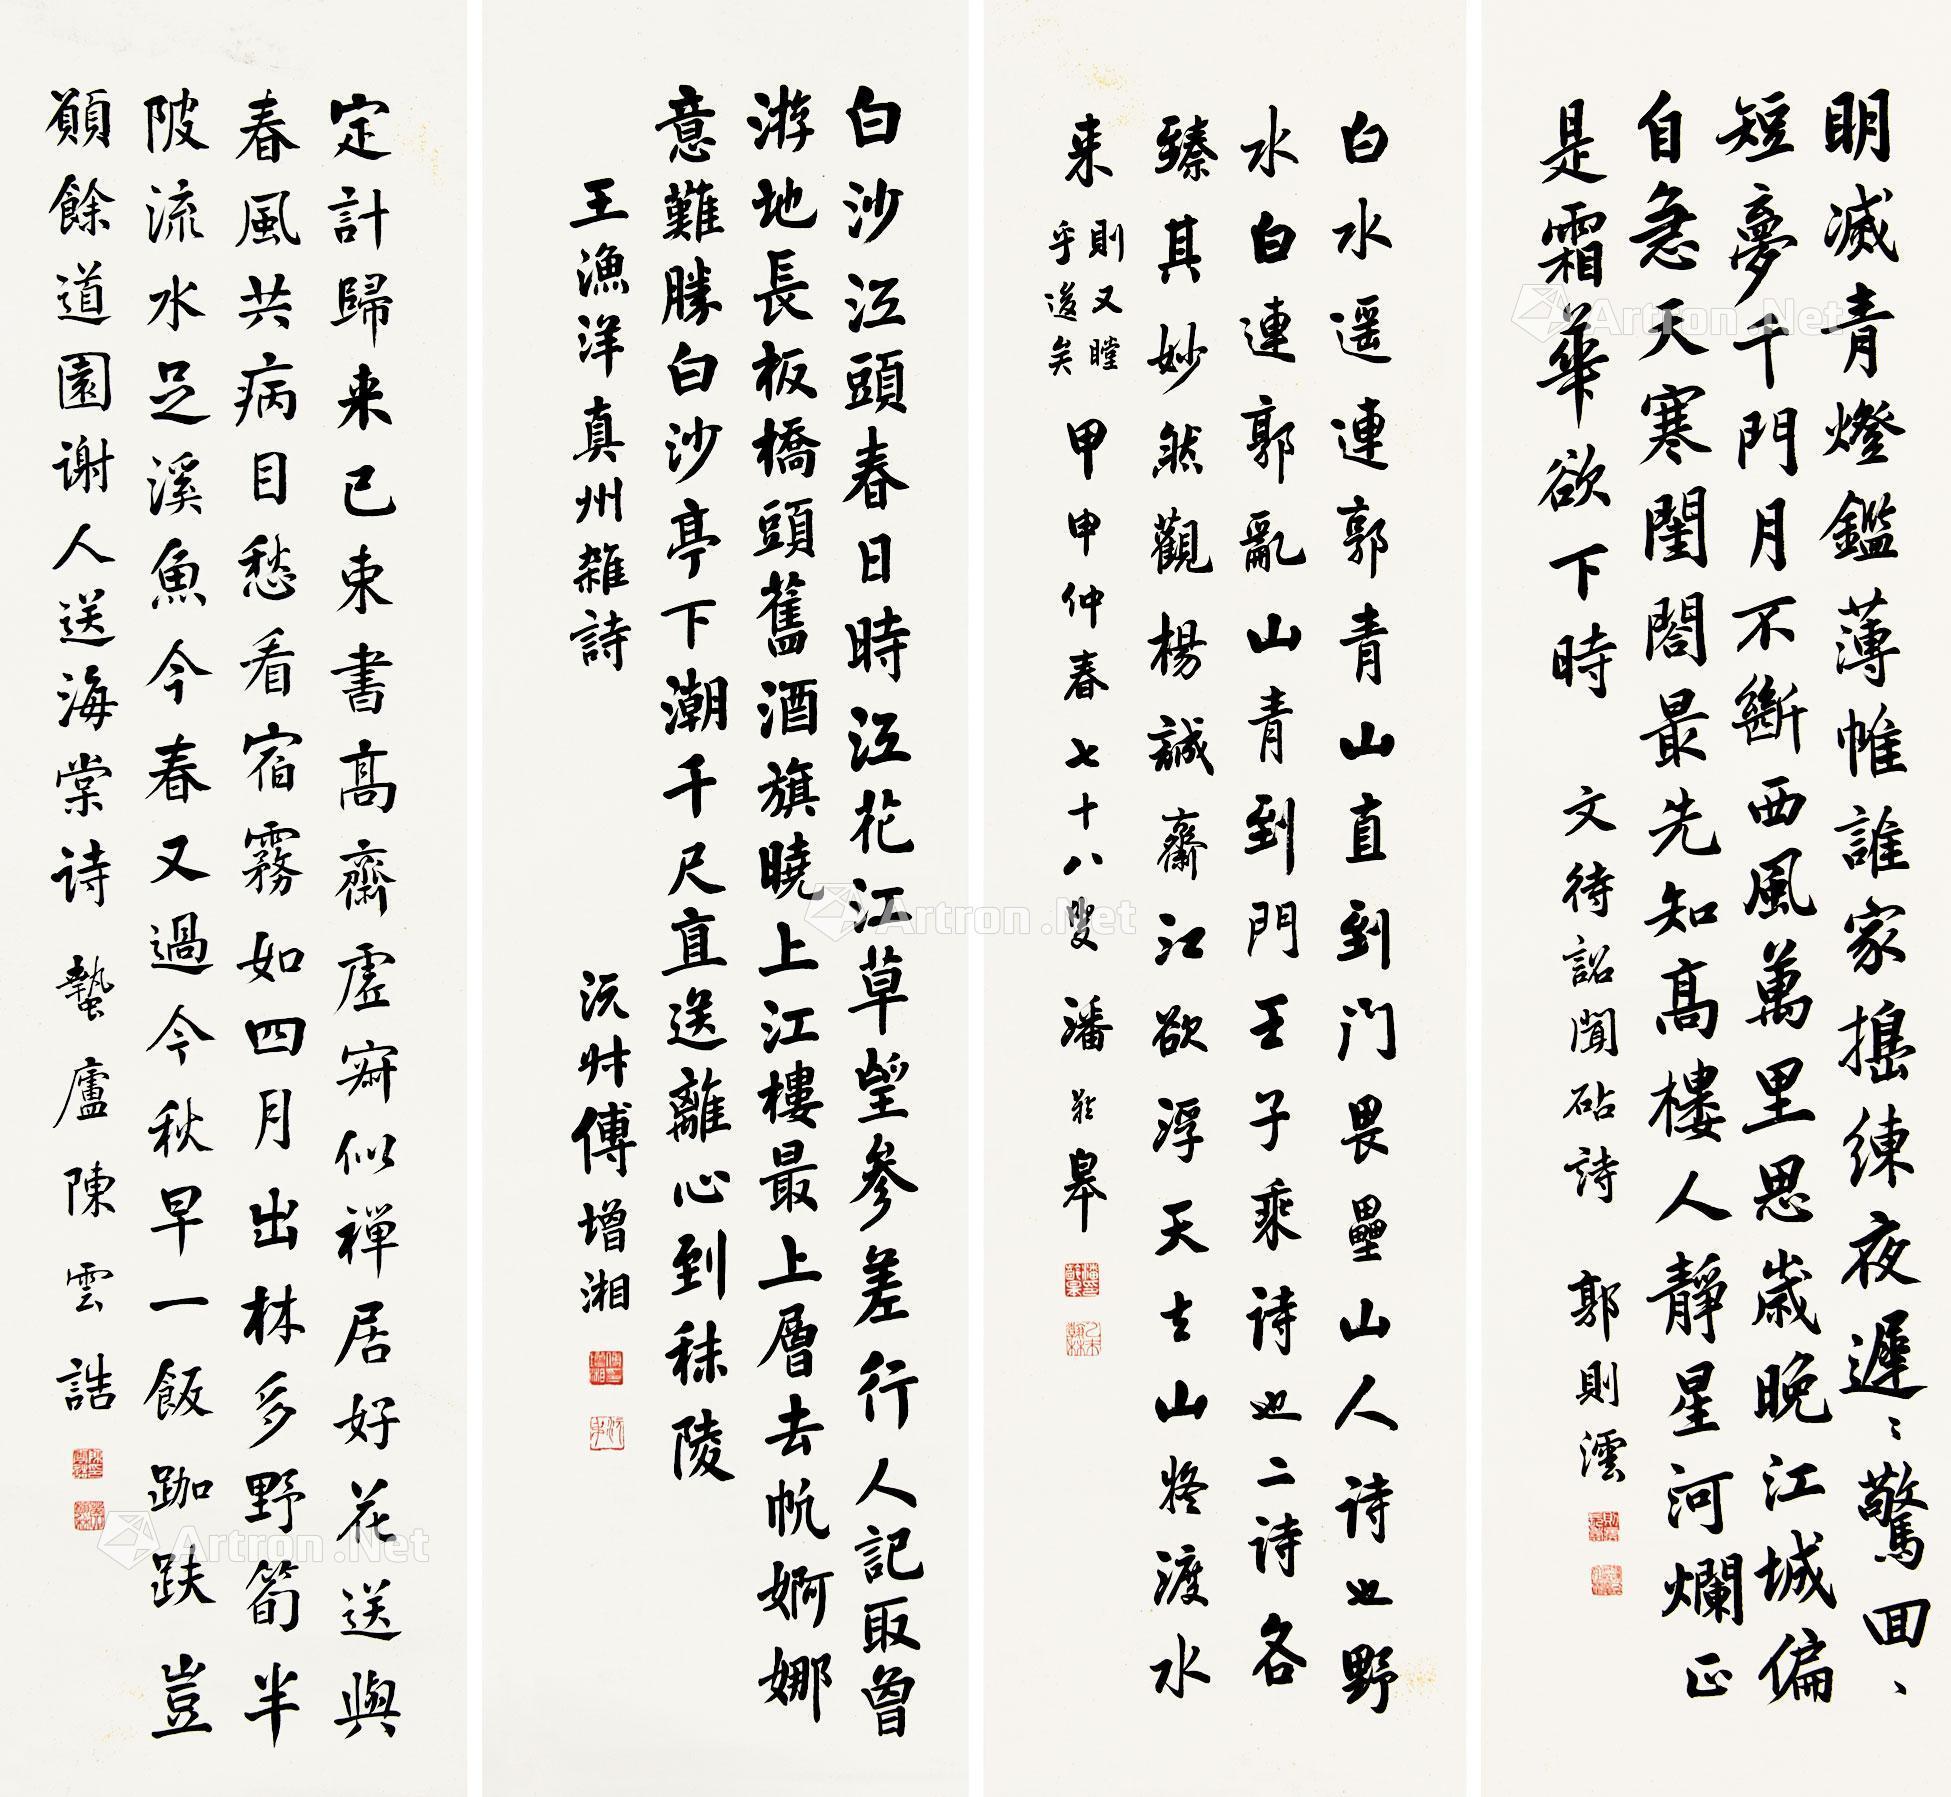 明滅青燈鑑薄帷誰家搗練夜遲遲驚回
短夢千門月不斷西風萬里思歲晚江城偏
自急天寒閨閤最先知高樓人靜星河爛正
是霜華欲下時
文待詔聞砧詩 郭則澐
白水遥連郭青山直到门畏壘山人诗也野
水白連郭亂山青到門王子乘诗也二诗各
臻其妙然觀楊誠齋江欲浮天去山将渡水
来
則又瞠
乎後矣
甲申仲春七十八叟潘齡皋
白沙江頭春日時江花江草望參差行人記取曾
游地長板橋頭舊酒旗曉上江樓最上層去帆婀娜
意難勝白沙亭下潮千尺直送離心到秣陵
王漁洋真州雜詩 沅叔傅增湘
定計歸来已束書高齋虛寂似禅居好花送與
春風共病目愁看宿霧如四月出林多野筍半
陂流水足溪魚今春又過今秋早一飯跏趺豈
願餘道園谢人送海棠诗 蟄廬陳雲誥
Artron.Net
Artron.Net
Artron.Net